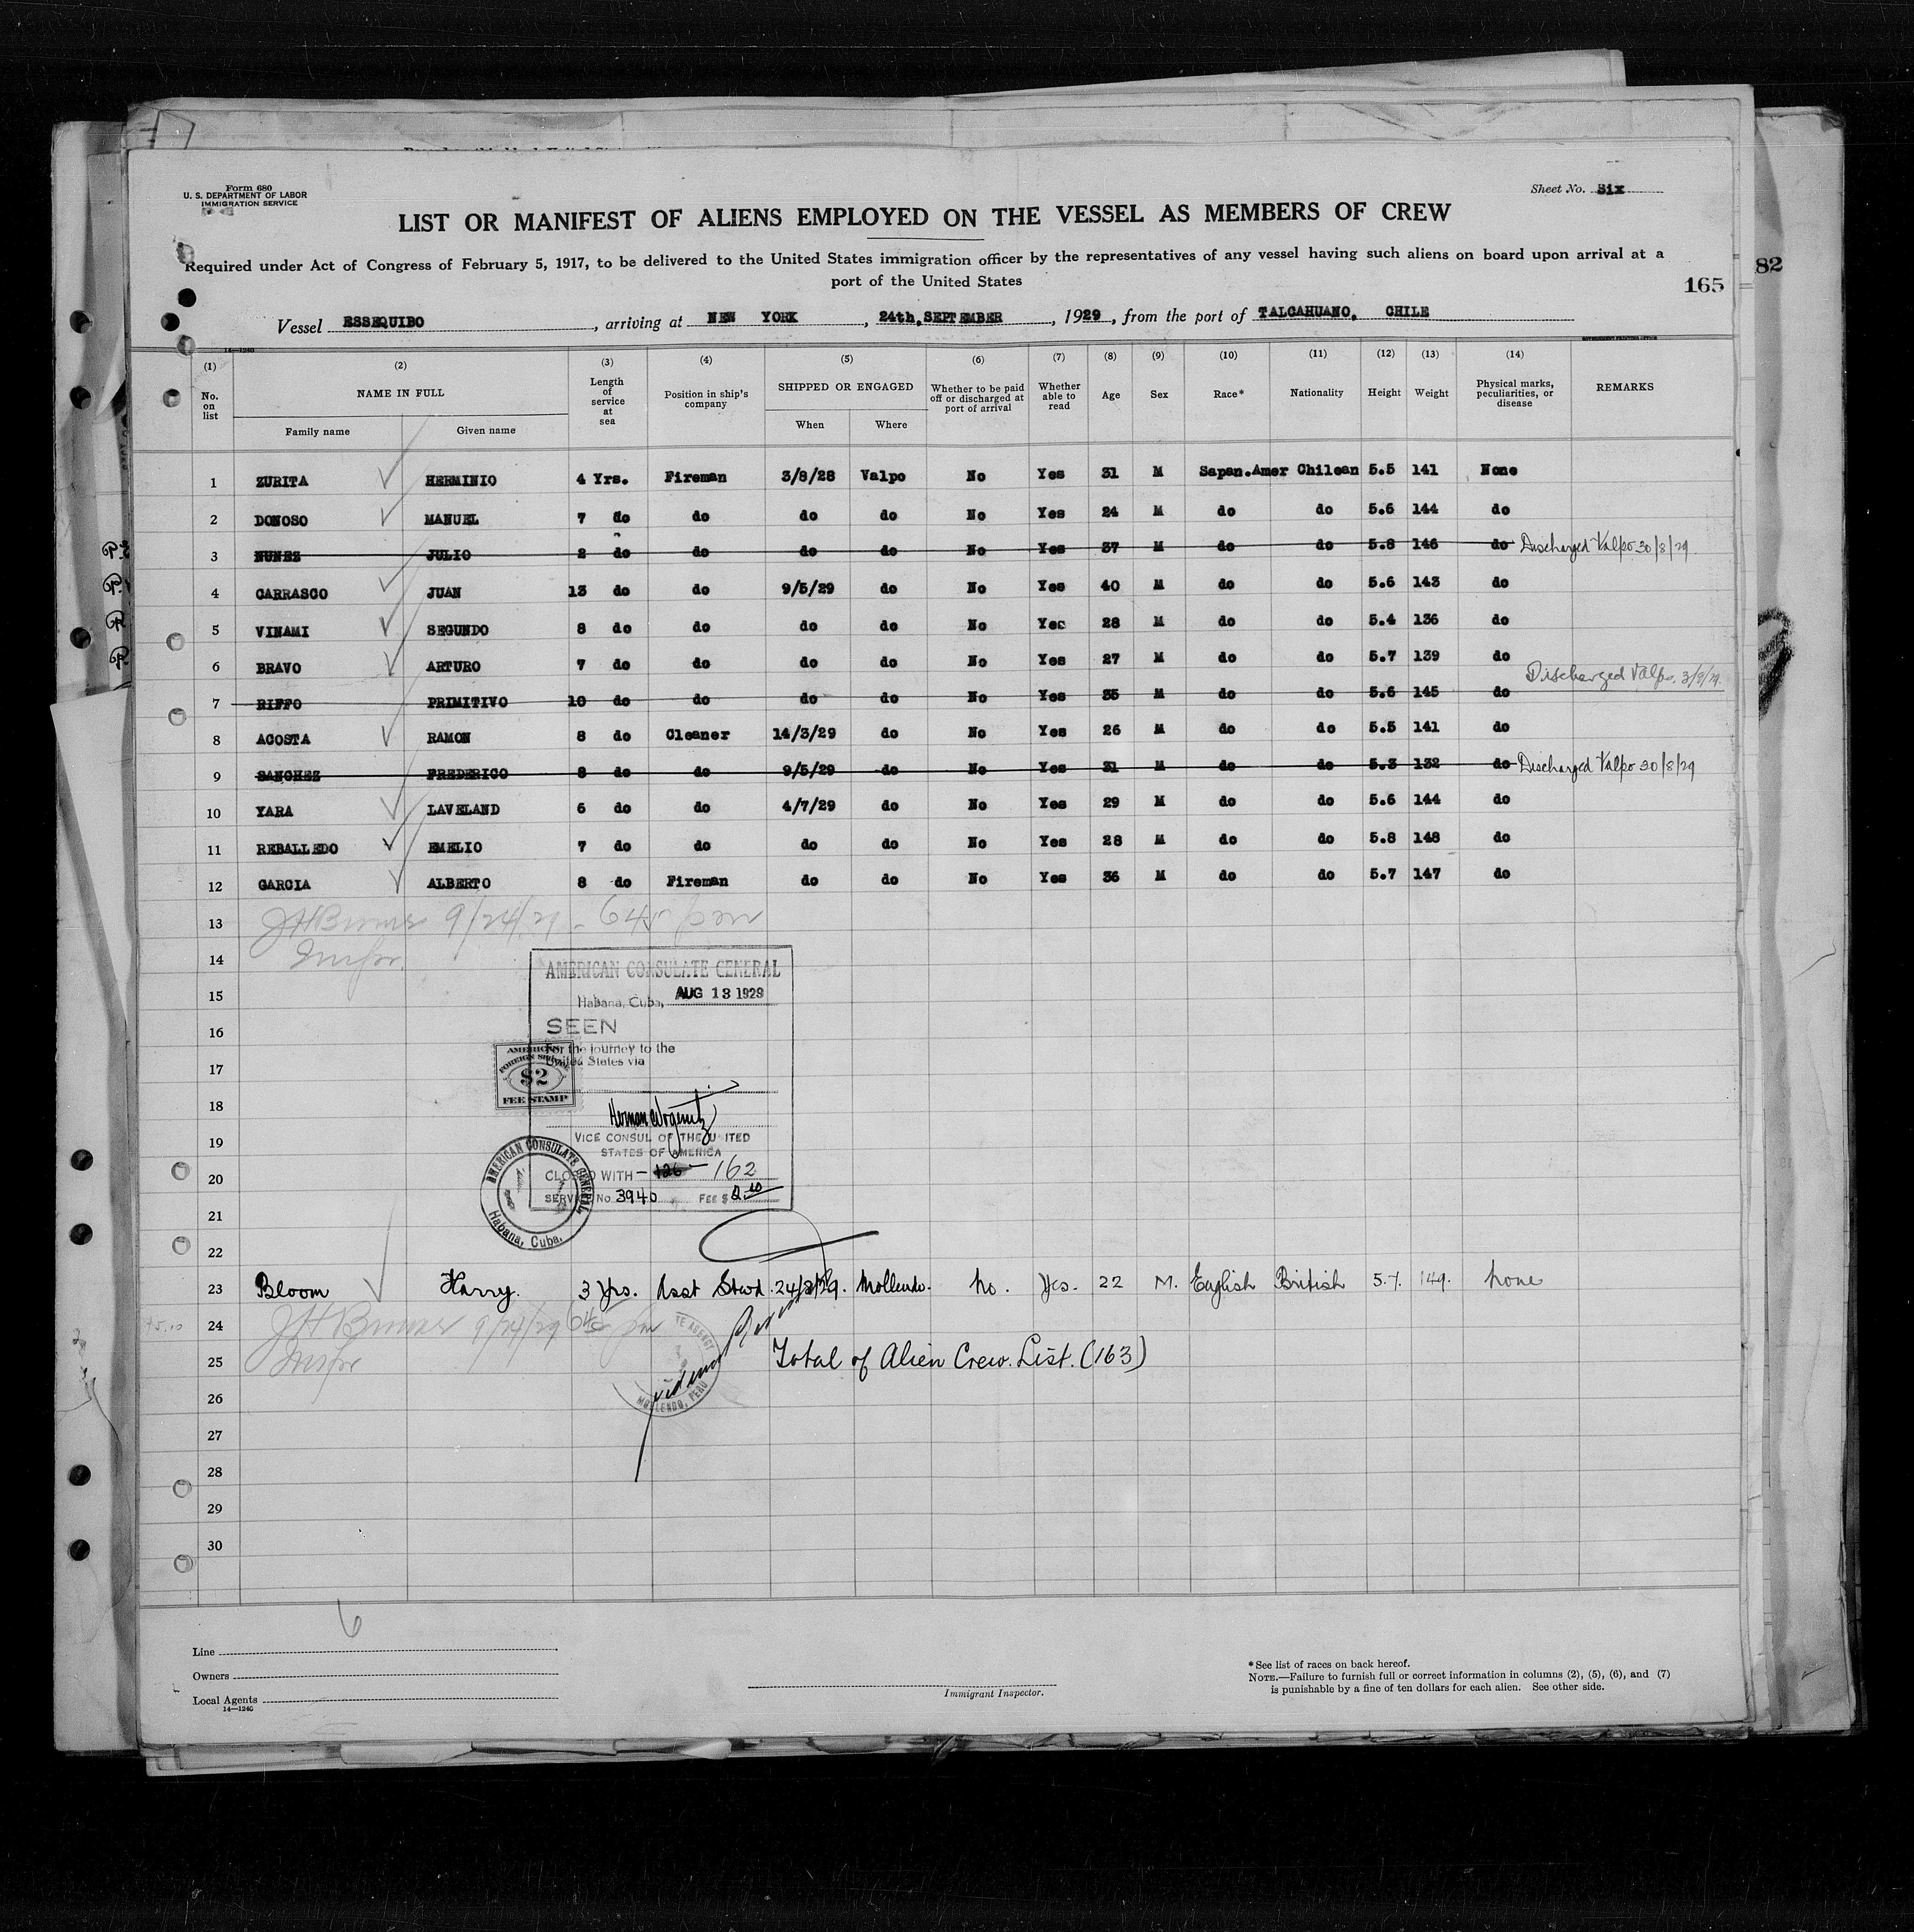 Form 680
U. S. DEPARTMENT OF LABOR
IMMIGRATION SERVICE
Sheet No. Six
LIST OR MANIFEST OF ALIENS EMPLOYED ON THE VESSEL AS MEMBERS OF CREW
Required under Act of Congress of February 5, 1917, to be delivered to the United States immigration officer by the representatives of any vessel having such aliens on board upon arrival at a
port of the United States
82
165
Vessel ESSEQUIBO, arriving at NEW YORK, 24th, SEPTEMBER, 1929, from the port of TALCAHUANO, CHILE
14—1240
GOVERNMENT PRINTING OFFICE
(1) (2) (3) (4) (5) (6) (7) (8) (9) (10) (11) (12) (13) (14)
No. on list NAME IN FULL Length of service at sea Position in ship's company SHIPPED OR ENGAGED Whether to be paid off or discharged at port of arrival Whether able to read Age Sex Race* Nationality Height Weight Physical marks, peculiarities, or disease REMARKS
Family name Given name When Where
1 ZURITA HERMINIO 4 Yrs. Fireman 3/8/28 Valpo No Yes 31 M Sapan.Amer Chilean 5.5 141 None
2 DONOSO MANUEL 7 do do do do No Yes 24 M do do 5.6 144 do
3 NUNEZ JULIO 2 do do do do No Yes 37 M do do 5.8 146 do Discharged Valpo 30/8/29.
4 CARRASCO JUAN 13 do do 9/5/29 do No Yes 40 M do do 5.6 143 do
5 VINAMI SEGUNDO 8 do do do do No Yec 28 M do do 5.4 136 do
6 BRAVO ARTURO 7 do do do do No Yes 27 M do do 5.7 139 do
7 RIFFO PRIMITIVO 10 do do do do No Yes 35 M do do 5.6 145 do Discharged Valpo. 3/9/29.
8 ACOSTA RAMON 8 do Cleaner 14/3/29 do No Yes 26 M do do 5.5 141 do
9 SANCHEZ FREDERICO 8 do do 9/5/29 do No Yes 31 M do do 5.3 132 do Discharged Valpo 30/8/29
10 YARA LAVELAND 6 do do 4/7/29 do No Yes 29 M do do 5.6 144 do
11 REBALLEDO EMELIO 7 do do do do No Yes 28 M do do 5.8 148 do
12 GARCIA ALBERTO 8 do Fireman do do No Yes 36 M do do 5.7 147 do
13 9/24/29 - 645 pm
14 Inspr.
15
16
17
18
19
20
21
22
AMERICAN CONSULATE GENERAL
Habana, Cuba, AUG 13 1929
SEEN
For the journey to the
United States via
AMERICAN
FOREIGN SERVICE
$2
FEE STAMP
VICE CONSUL OF THE UNITED
STATES OF AMERICA
CLOSED WITH - 126 - 162
SERVICE No. 3940 FEE $ 2.00
AMERICAN CONSULATE GENERAL
Habana, Cuba.
23 Bloom Harry. 3 Yrs. Asst Stwd. 24/8/29. Mollendo. No. Yes. 22 M. English British 5.7. 149. None
24 9/24/29 645 pm
25 Inspr Total of Alien Crew. List. (163)
MOLLENDO, PERU
26
27
28
29
30
6
Line
Owners
Local Agents
14—1240
Immigrant Inspector.
*See list of races on back hereof.
NOTE.—Failure to furnish full or correct information in columns (2), (5), (6), and (7)
is punishable by a fine of ten dollars for each alien. See other side.